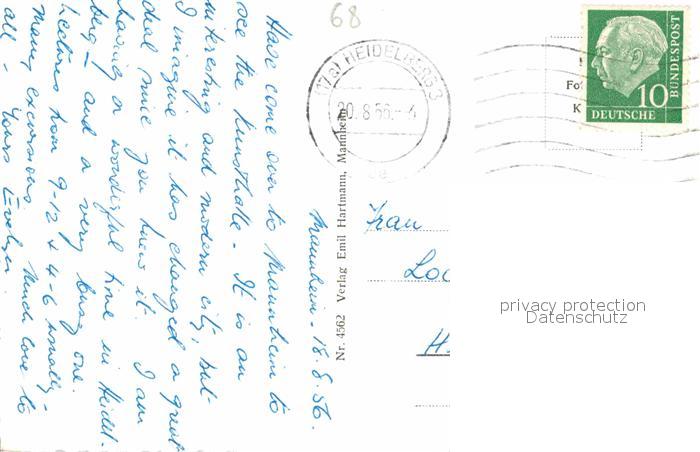 68
Mannheim - 18.8.56.
Have come over to Mannheim to
see the Kunsthalle. It is an
interesting and modern city, but
I imagine it has changed a great
deal since you knew it. I am
having a wonderful time in Heidel-
berg - and a very busy one.
Lectures from 9-12 & 4-6 usually -
many excursions. Much love to
all - Yours Evelyn.
Nr. 4562 Verlag Emil Hartmann, Mannheim
(17a) HEIDELBERG 3
20.8.56.
DEUTSCHE
BUNDESPOST
10
Fo
K
Frau
Loc
H.
privacy protection
Datenschutz